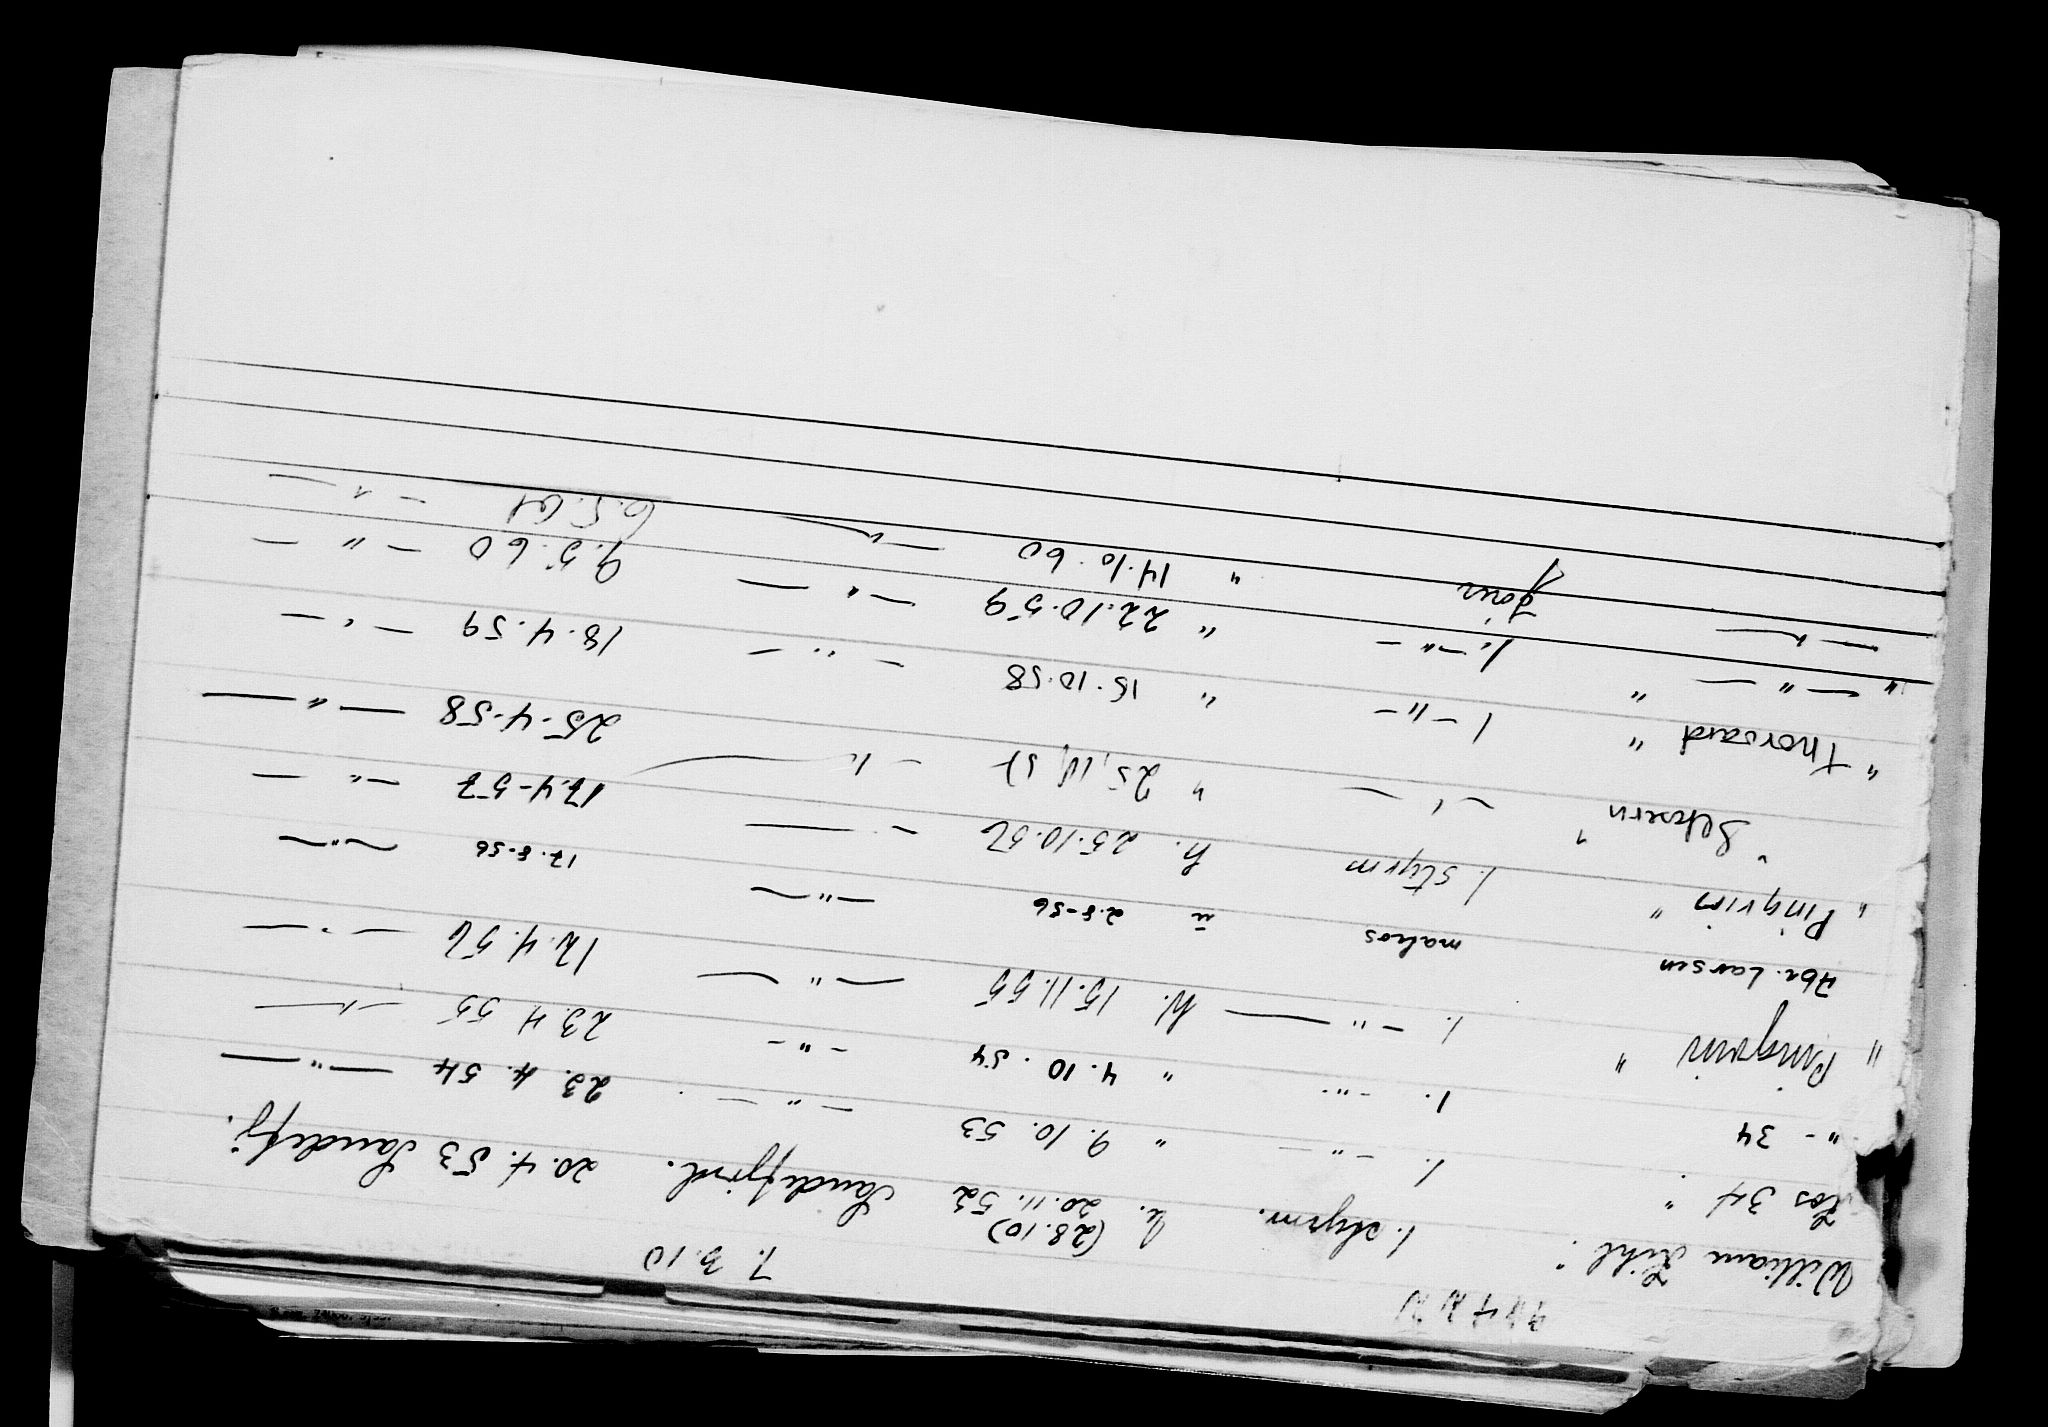 7. 3. 10
William Kihl " 1. styrm. h. (28.10) 20.11.52 Sandefjord. 20.4.53 Sandefj.
Kos 34 " 1. - " - " 9.10.53 - " - 23.4.54 - " -
" - 34 1. - " - " 4.10.54 - " - 23.4.55 - " -
" Pingvin " 1. - " - h. 15.11.55 - " - 12.4.56 - " -
Abr. Larsen matros u 2-8-56 - " - 17-8-56 - " -
" Pingvin " 1. styrm h. 25.10.56 - " - 17.4-57 - " -
" Seksern " - " - " 25,10,57 - " - 25-4-58 - " -
" Thorvard " 1 - " - " 15.10.58 - " - 18.4.59 - " -
" - " - " 1. - " - " 22.10.59 - " - 9.5.60 - " -
- " - " 14.10.60 - " - 6.5.61 - " -